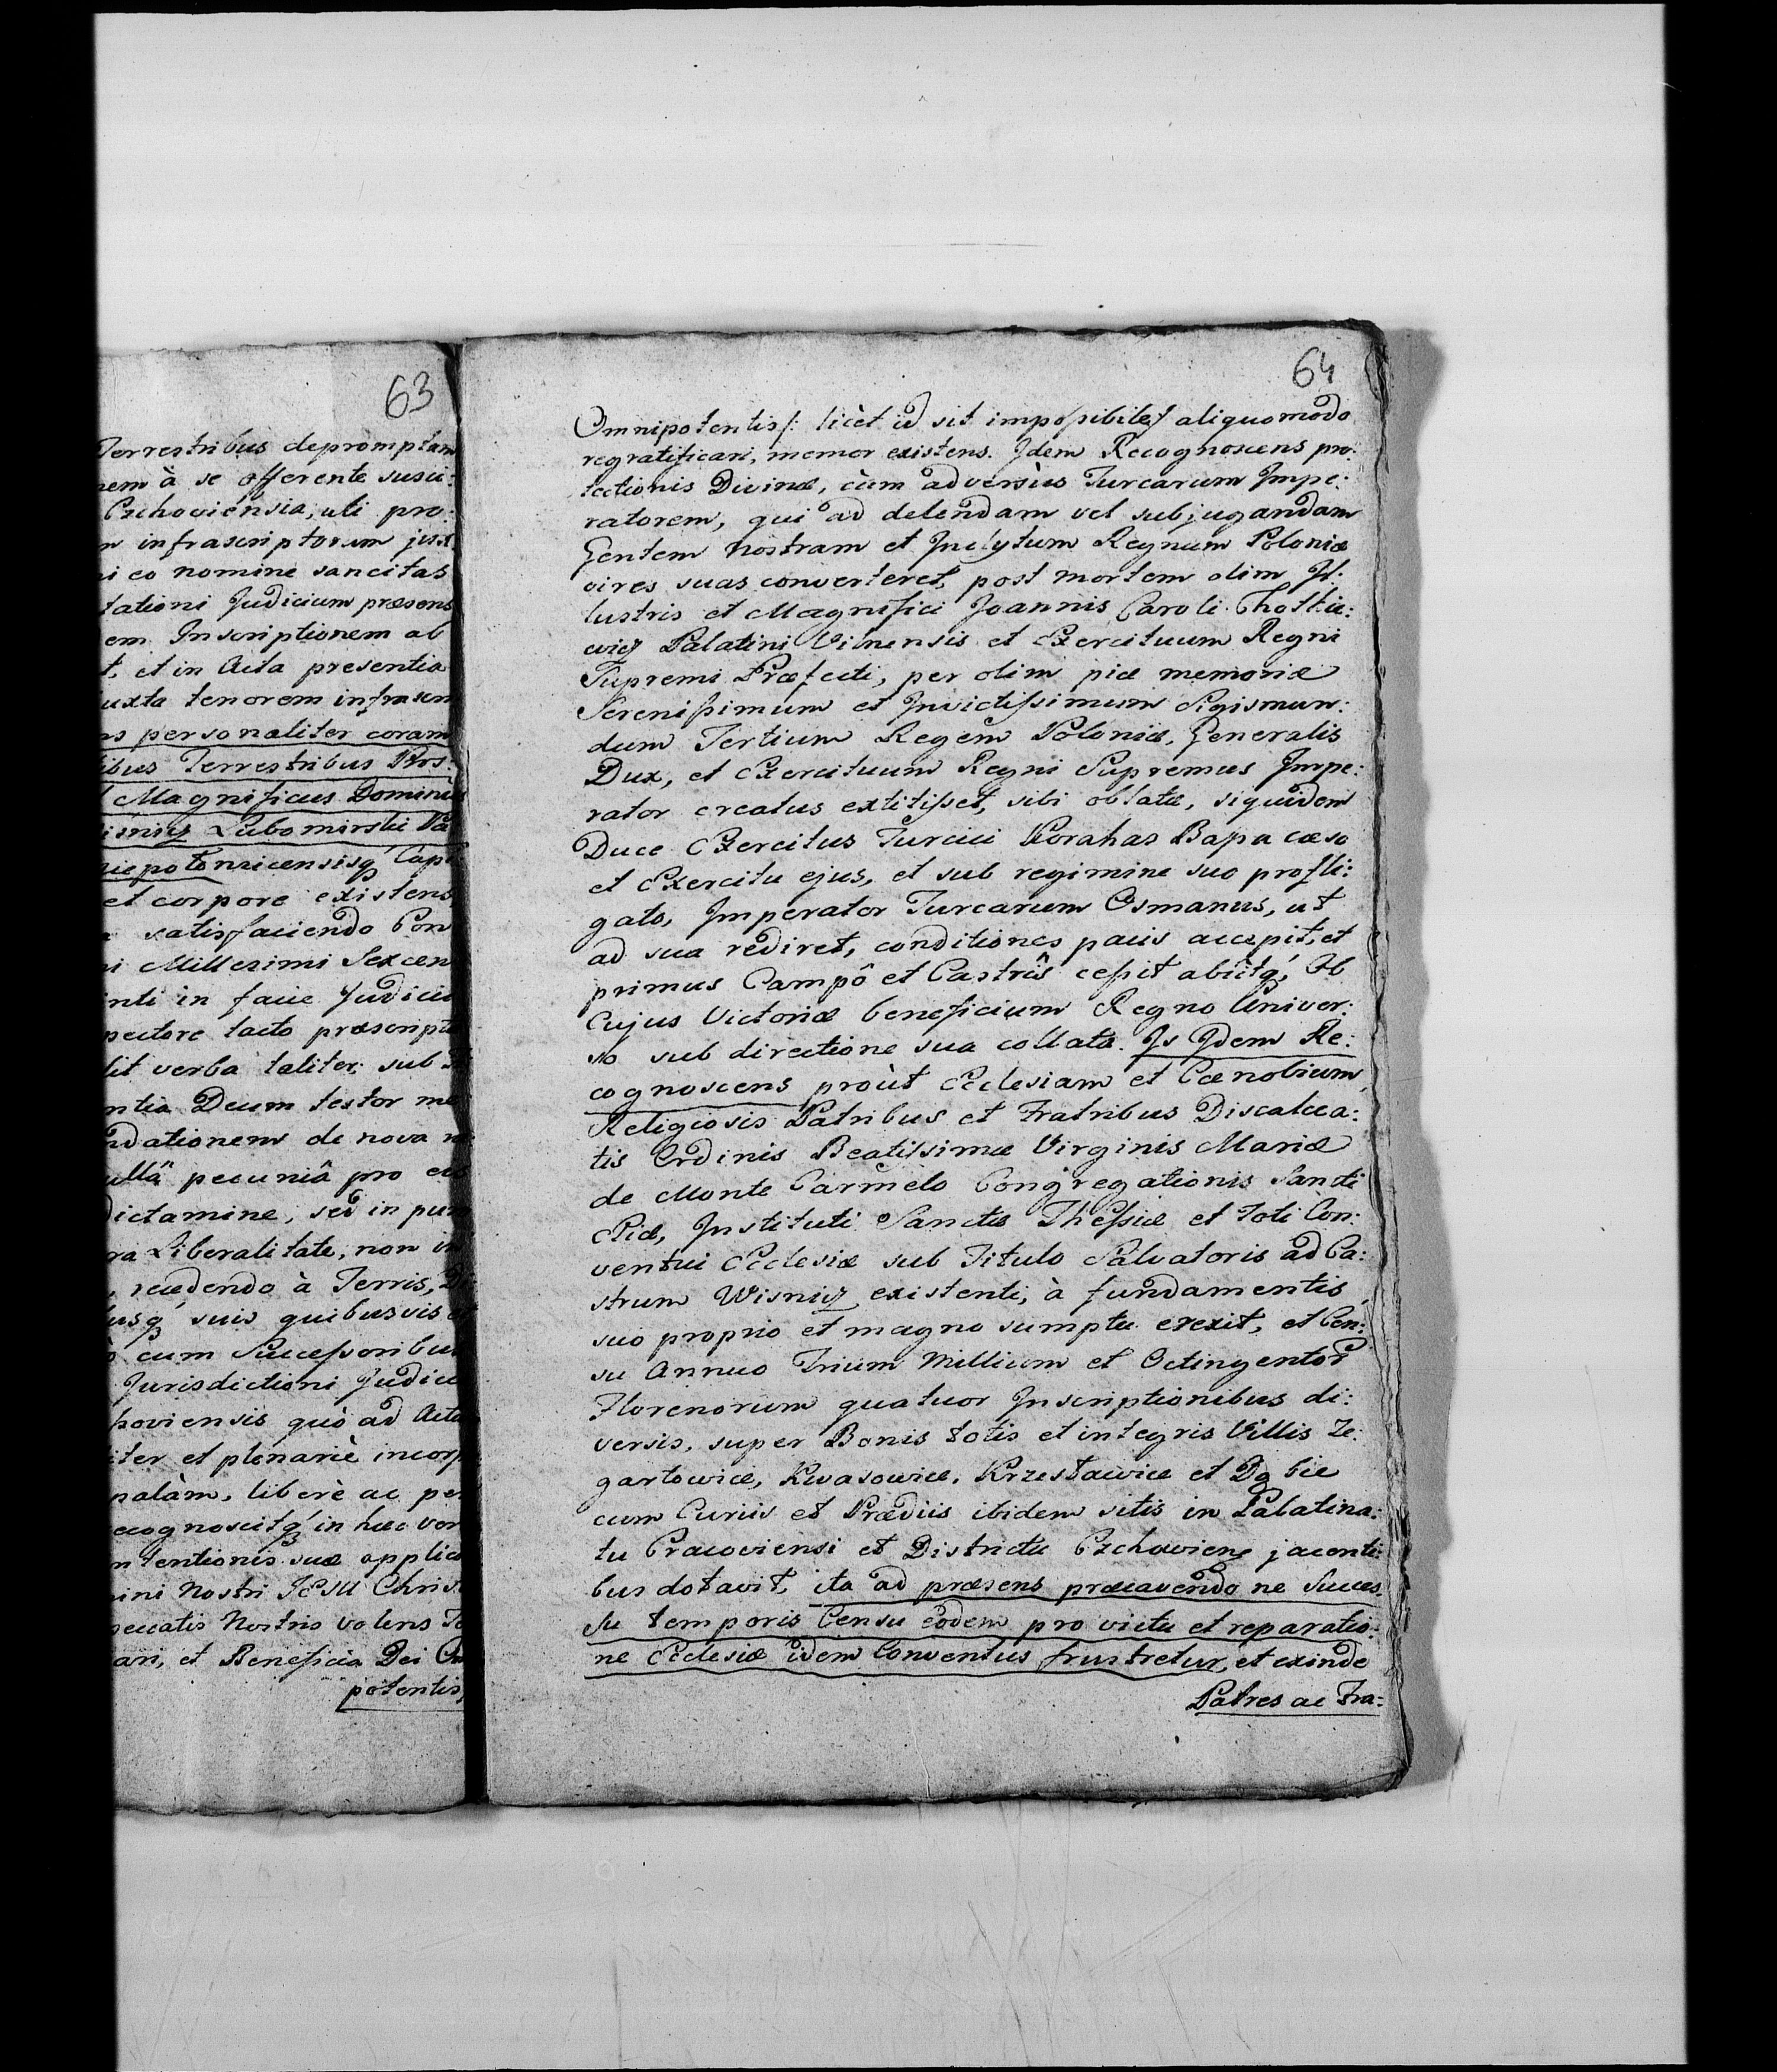 63
Terrestribus depromptam
nem à se offerente susci:
Czchoviensia, uti pro:
n infrascriptorum juxt
ni eo nomine sancitas
tationi Judicium præsens
em Inscriptionem ab
t, et in Acta presentia
uxta tenorem infrascri
ns personaliter coram
ibus Terrestribus Pros:
Magnificus Dominus
isnicz Lubomirski Pa
niepotonicensisq́ Capi
et corpore existens
satisfaciendo Con
ni Millesimi Sexcen
inti in facie Judicii
pectore tacto præscript
dit verba taliter: sub
ntia Deum testor me
ndationem de nova
ullâ pecuniâ pro ea
Dictamine, sed in pura
ra Liberalitate, non in
, recedendo à Terris, Di
usq́ suis quibusvis
ò cum Successoribus
Jurisdictioni Judicii
hoviensis quò ad Acta
iter et plenariè incorp
palàm, liberè ac per
ecognoscitq́ in hæc ver
ntentionis suæ applica
ini Nostri JESU Christi
peccatis Nostris volens
ari, et Beneficia Dei Om
potentis,
64
Omnipotentis /: licèt id sit impossibile :/ aliquomodo
regratificari, memor existens. Idem Recognoscens pro:
tectionis Divinæ, cùm adversùs Turcarum Impe:
ratorem, qui ad delendam vel subjugandam
Gentem nostram et Inclytum Regnum Poloniæ
vires suas converteret, post mortem olim Il:
lustris et Magnifici Joannis Caroli Chotkie:
wicz Palatini Vilnensis et Exercituum Regni
Supremi Præfecti, per olim piæ memoriæ
Serenissimum et Invictissimum Sigismun:
dum Tertium Regem Poloniæ, Generalis
Dux, et Exercituum Regni Supremus Impe:
rator creatus extitisset, sibi oblatæ, siquidem
Duce Exercitus Turcici Korahas Bassa cæso
et Exercitu ejus, et sub regimine suo profli:
gato, Imperator Turcarum Osmanus, ut
ad sua rediret, conditiones pacis accepit, et
primus Campô et Castrîs cessit abiitq́, Ob
Cujus Victoriæ beneficium Regno Univer:
so sub directione sua collatæ. Is Idem Re:
cognoscens proùt Ecclesiam et Cœnobium
Religiosis Patribus et Fratribus Discalcea:
tis Ordinis Beatissimæ Virginis Mariæ
de Monte Carmelo Congregationis Sancti
Eliæ, Instituti Sanctæ Thessiæ et toti Con:
ventui Ecclesiæ sub Titulo Salvatoris ad Ca:
strum Wisnicz existenti, à fundamentis
suo proprio et magno sumptu erexit, et Cen:
su Annuo Trium Millium et Octingentor
Florenorum quatuor Inscriptionibus di:
versis, super Bonis totis et integris Villis Ze:
gartowice, Kwasowice, Krzesławice et Dąbie
cum Curiis et Prædiis ibidem sitis in Palatina:
tu Cracoviensi et Districtu Czchoviens jacenti:
bus dotavit, ita ad præsens præcavendo ne Succes
su temporis Censu eodem pro victu et reparatio:
ne Ecclesiæ idem Conventus frustretur, et exinde
Patres ac Fra: